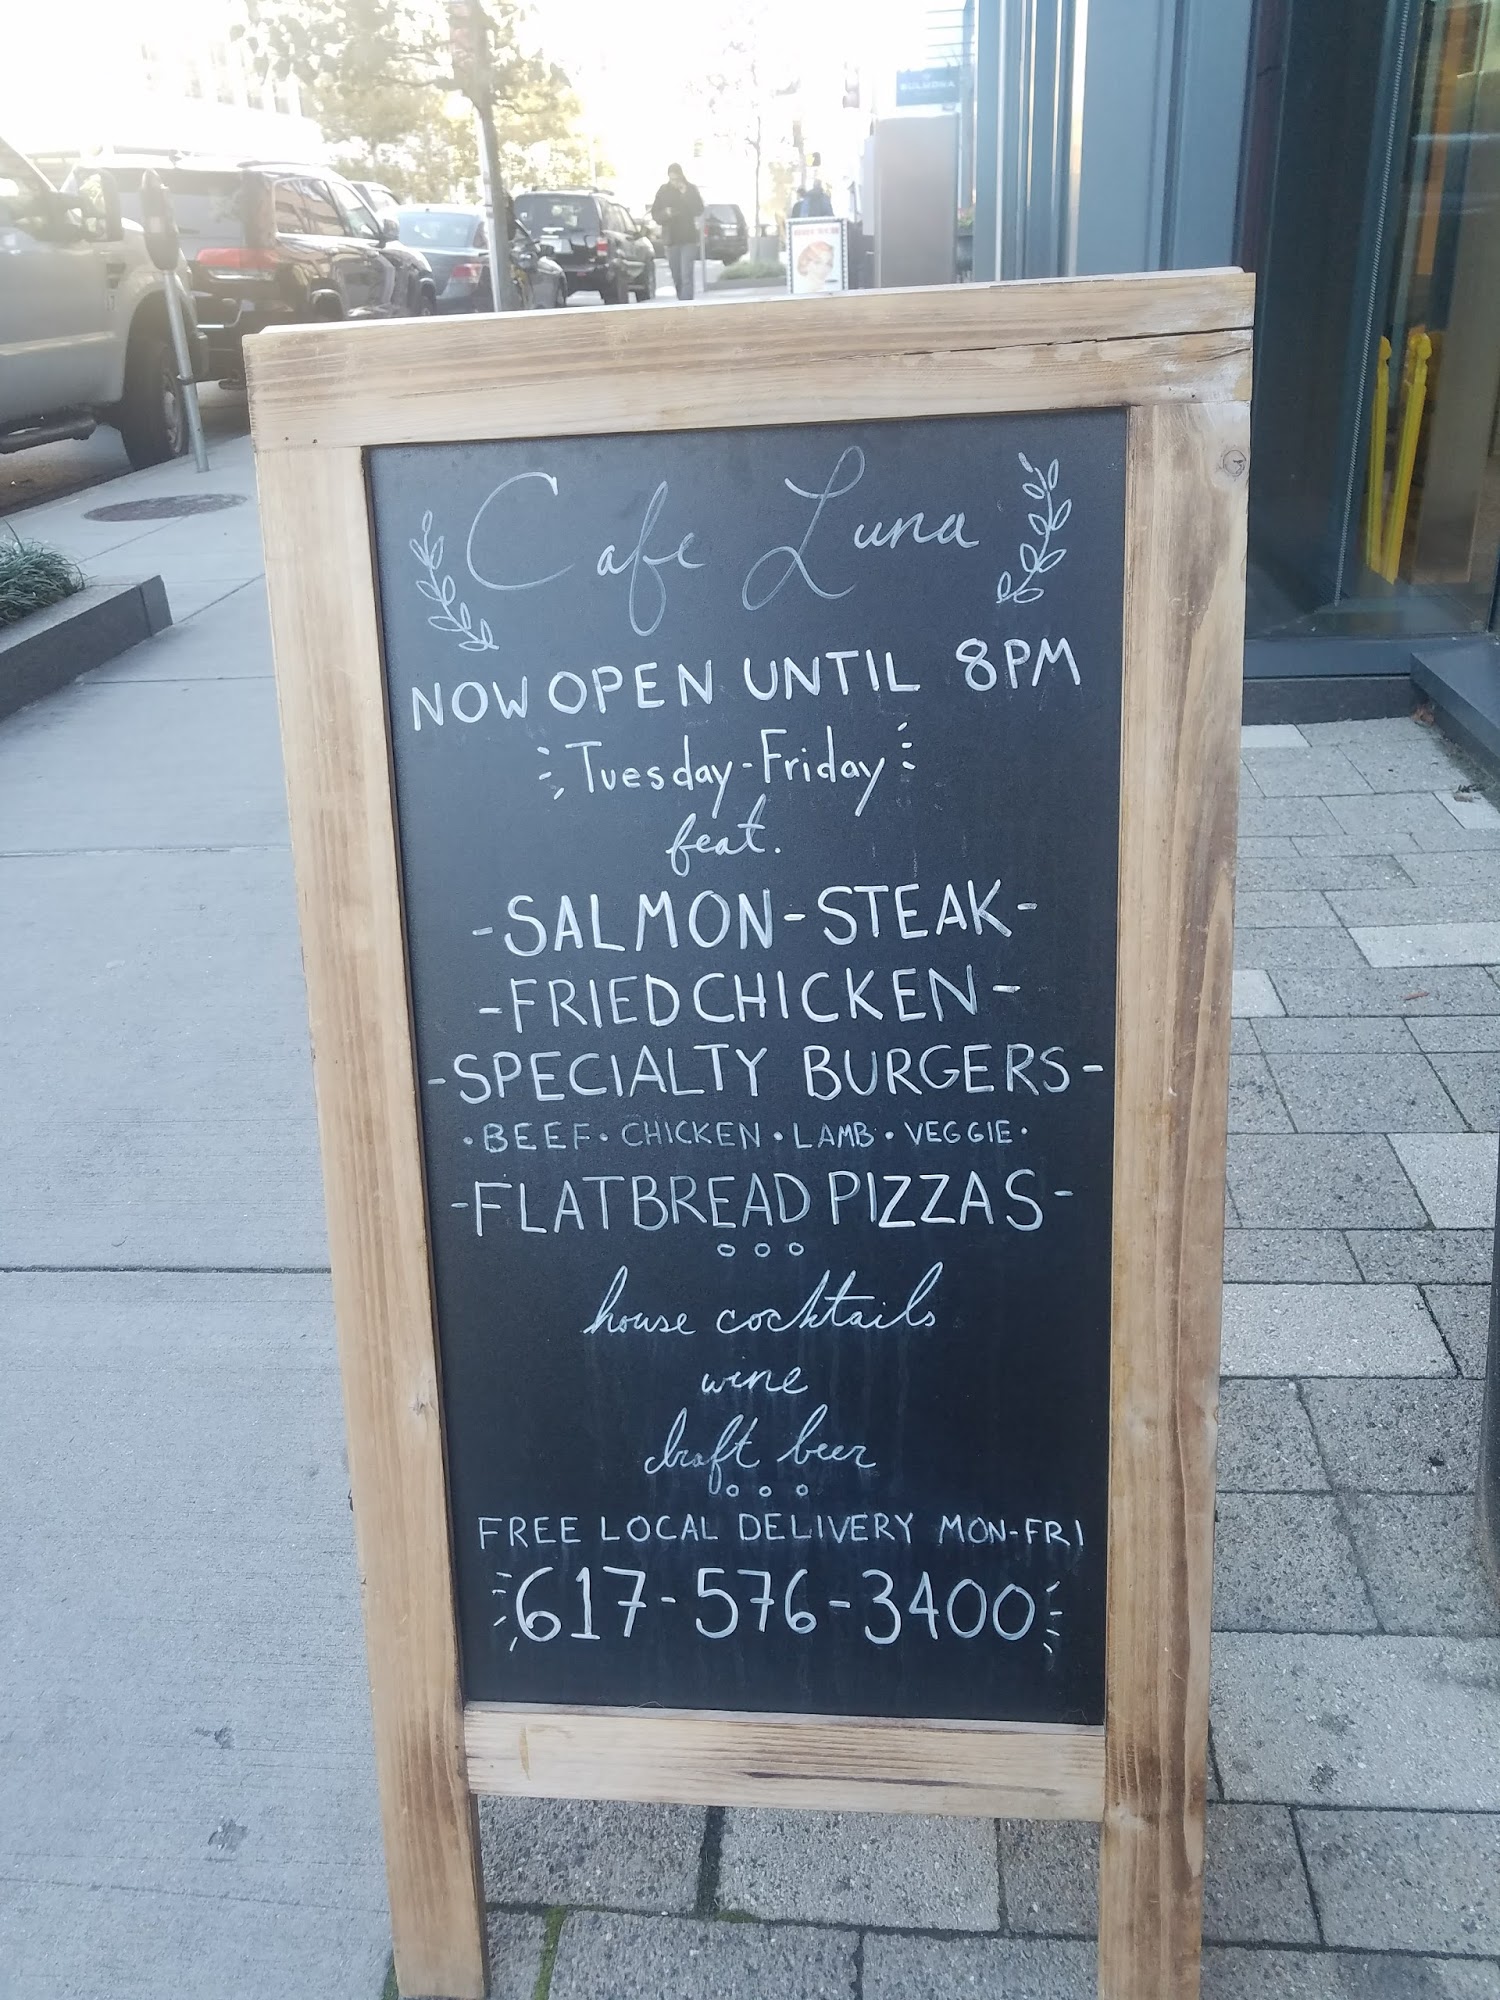 Cafe Luna
NOW OPEN UNTIL 8PM
Tuesday-Friday
feat.
-SALMON-STEAK-
-FRIED CHICKEN-
-SPECIALTY BURGERS-
·BEEF·CHICKEN·LAMB·VEGGIE·
-FLATBREAD PIZZAS-
house cocktails
wine
draft beer
FREE LOCAL DELIVERY MON-FRI
617-576-3400